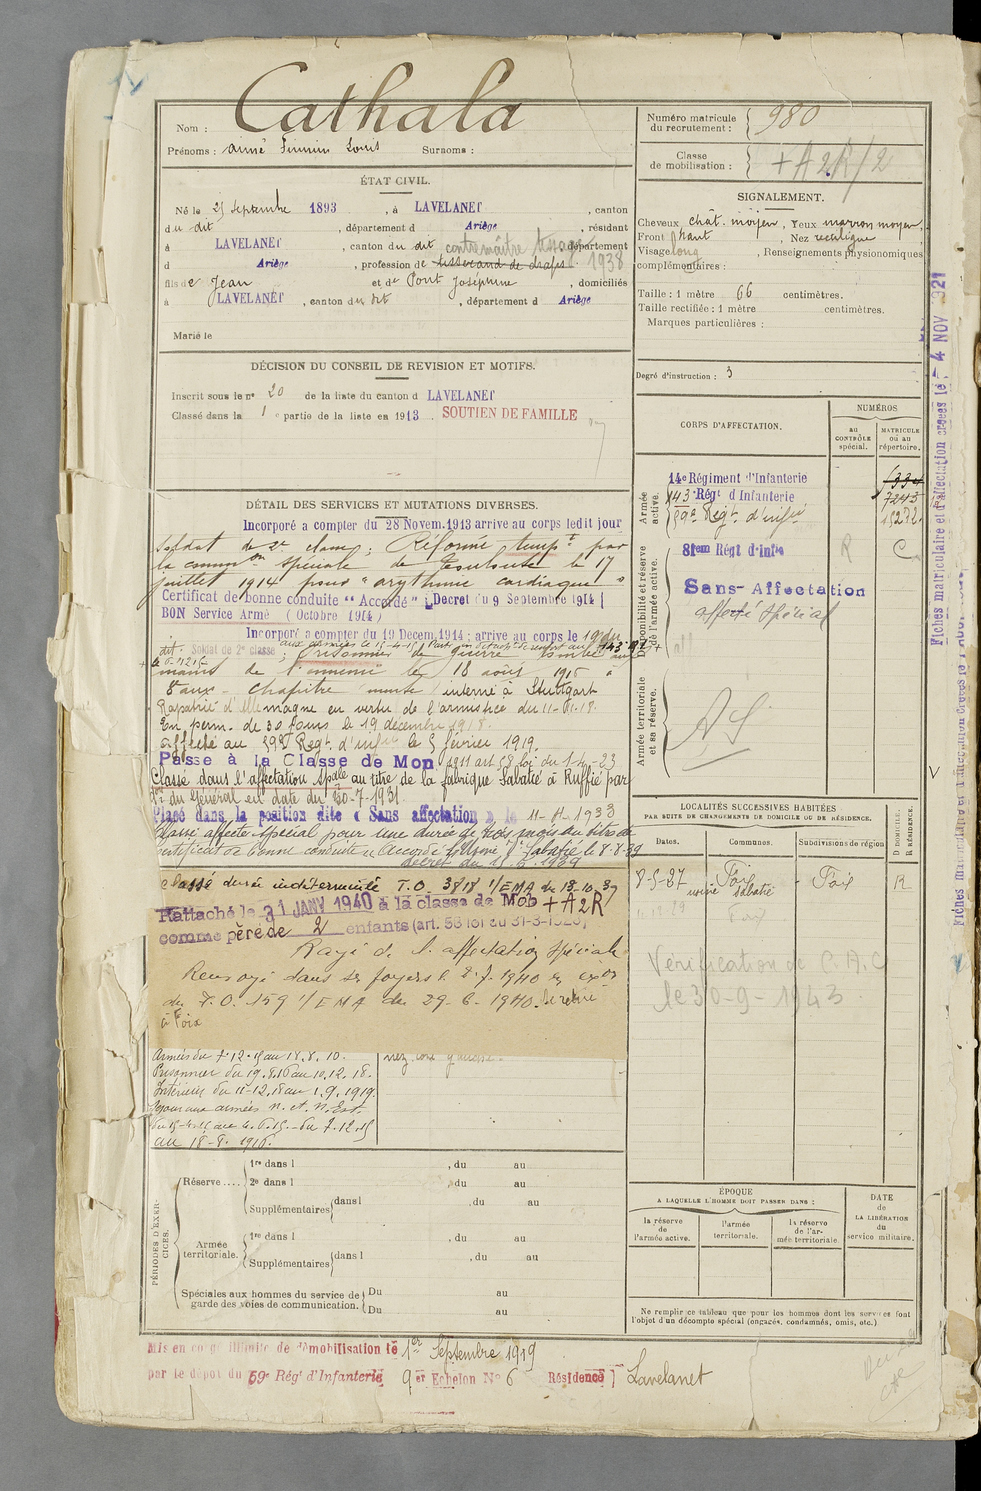 Nom : Cathala
Prénoms : Aimé Firmin Louis Surnoms :
Numéro matricule du recrutement : 980
Classe de mobilisation : + A2R/2
ÉTAT CIVIL.
Né le 25 Septembre 1893, à LAVELANET, canton
du dit, département d Ariège, résidant
à LAVELANET, canton du dit, département
contremaître tissage 1938
d Ariège, profession de tisserand de draps
fils de Jean et de Pont Joséphine, domiciliés
à LAVELANET, canton du dit, département d Ariège
Marié le
SIGNALEMENT.
Cheveux chât. moyen, Yeux marron moyen,
Front haut, Nez rectiligne
Visage long, Renseignements physionomiques
complémentaires :
Taille : 1 mètre 66 centimètres.
Taille rectifiée : 1 mètre centimètres.
Marques particulières :
Degré d'instruction : 3
DÉCISION DU CONSEIL DE REVISION ET MOTIFS.
Inscrit sous le n° 20 de la liste du canton d LAVELANET
Classé dans la 1e partie de la liste en 1913. SOUTIEN DE FAMILLE
DÉTAIL DES SERVICES ET MUTATIONS DIVERSES.
Incorporé a compter du 28 Novem. 1913 arrive au corps ledit jour
Soldat de 2e classe ; Réformé tempre par
la common spéciale de Toulouse le 17
juillet 1914 pour "arythmie cardiaque"
Certificat de bonne conduite "Accordé" [Decret du 9 Septembre 1914]
BON Service Armé (Octobre 1914)
Incorporé a compter du 19 Decem. 1914 ; arrive au corps le 19 du
dit Soldat de 2e classe ; prisonnier de guerre
mains de l'ennemi le 18 août 1916
Vaux-Chapitre interné à Stuttgart
Rapatrié d'Allemagne en vertu de l'armistice du 11-11-18
En perm. de 30 jours le 19 décembre 1918.
affecté au 59e Regt d'infie le 5 février 1919.
Passe à la Classe de Mon 1911 art 58 loi du 1-4-23
Classé dans l'affectation spale au titre de la fabrique Sabatié à Ruffié par
Don du Général en date du 20-7-1931
Placé dans la position dite « Sans affectation » le 11-11-1933
Classé affecté spécial pour une durée de trois mois au titre de
Sabatié le 8-8-39
Certificat de bonne conduite "Accordé"
Classé durée indéterminée T.O. 3818 1/EMA du 13-10-39
Rattaché le 31 JANV 1940 à la classe de Mob + A2R
comme père de 2 enfants (art. 58 loi du 31-3-1928)
Rayé de l'affectation spéciale
Renvoyé dans ses foyers le 8-7-1940 en exon
du T.O. 159 1/EMA du 29-6-1940. Se retire
à Foix
Armées du 7.12.15 au 18.8.16.
Prisonnier du 19.8.16 au 10.12.18.
Intérieur du 11-12.18 au 1.9.1919.
Séjour aux armées N. et N. Est.
du 15-4-15 au 6.6.15.- du 7-12-15
au 18-8.1916.
CORPS D'AFFECTATION.
NUMÉROS
au CONTRÔLE spécial.
MATRICULE ou au répertoire.
Armée active.
14e Régiment d'Infanterie
143e Régt d'Infanterie 7243
59e Regt d'infie 15272
Disponibilité et réserve de l'armée active.
81em Régt d'Infie R C
Sans-Affectation
affecté spécial
Armée territoriale et sa réserve.
AS
LOCALITÉS SUCCESSIVES HABITÉES
PAR SUITE DE CHANGEMENTS DE DOMICILE OU DE RÉSIDENCE.
Dates. Communes. Subdivisions de région D DOMICILE. R RÉSIDENCE.
8-5-37 Foix usine Sabatié - Foix R
Foix
Vérification de C.A.C
le 30-9-1943
PÉRIODES D'EXERCICES.
Réserve .... 1re dans l , du au
2e dans l , du au
Supplémentaires dans l , du au
Armée territoriale. 1re dans l , du au
Supplémentaires dans l , du au
Spéciales aux hommes du service de garde des voies de communication. Du au
Du au
ÉPOQUE
A LAQUELLE L'HOMME DOIT PASSER DANS :
la réserve de l'armée active.
l'armée territoriale.
la réserve de l'armée territoriale.
DATE de LA LIBÉRATION du service militaire.
Ne remplir ce tableau que pour les hommes dont les services font
l'objet d'un décompte spécial (engagés, condamnés, omis, etc.)
Mis en congé illimité de démobilisation le 1er Septembre 1919
par le dépôt du 59e Rég' d'Infanterie 9e Echelon N° 6 Résidence Lavelanet
Fiches matriculaire et d'affectation créées le 4 NOV 1921